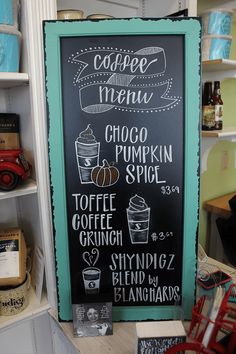 coffee
menu
CHOCO
PUMPKIN
SPICE
$3.69
TOFFEE
COFFEE
CRUNCH
$3.69
SHYNDIGZ
BLEND by
BLANCHARDS